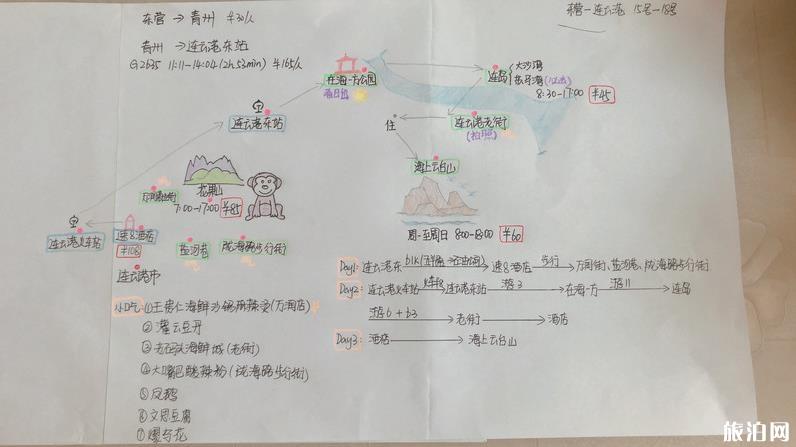 东营 → 青州 ¥30/人
东营—连云港 15号—18号
青州 → 连云港东站
G2635 11:11-14:04(2h53min) ¥165/人
在海一方公园
看日出
连岛
大沙湾
苏马湾
8:30-17:00 ¥45
连云港东站
住
连云港老街
(拍照)
海上云台山
周一至周日 8:00-18:00 ¥60
花果山
7:00-17:00 ¥85
连云港站
速8酒店
¥108
盐河巷
陇海路步行街
连云港市
Day1: 连云港东 → 速8酒店 步行 → 万润街、盐河巷、陇海路步行街
Day2: 连云港站 → 连云港东站 游3 → 在海一方 游11 → 连岛
游6 + b3 → 老街 → 酒店
Day3: 酒店 → 海上云台山
小吃: ①王厝仁海鲜砂锅麻辣烫(万润店)
②灌云豆丹
③老码头海鲜城(老街)
④大嘴巴酸辣粉(陇海路步行街)
⑤风鹅
⑥文思豆腐
⑦爆乌花
旅泊网